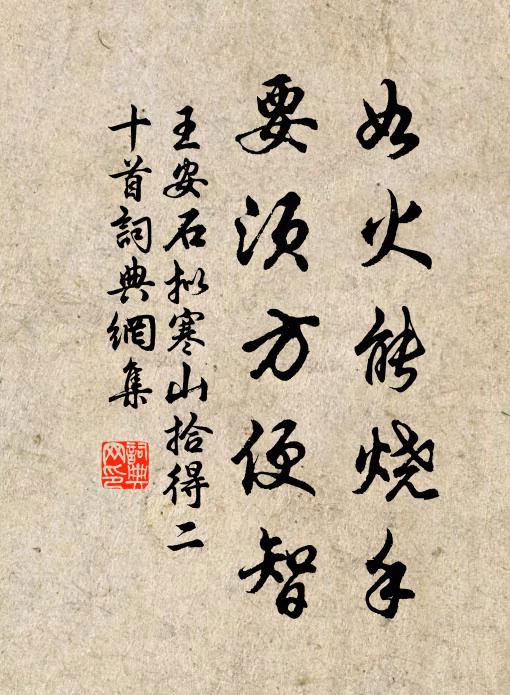 如火能烧手
要须方便智
王安石拟寒山拾得二
十首詞典網集
詞典
网印